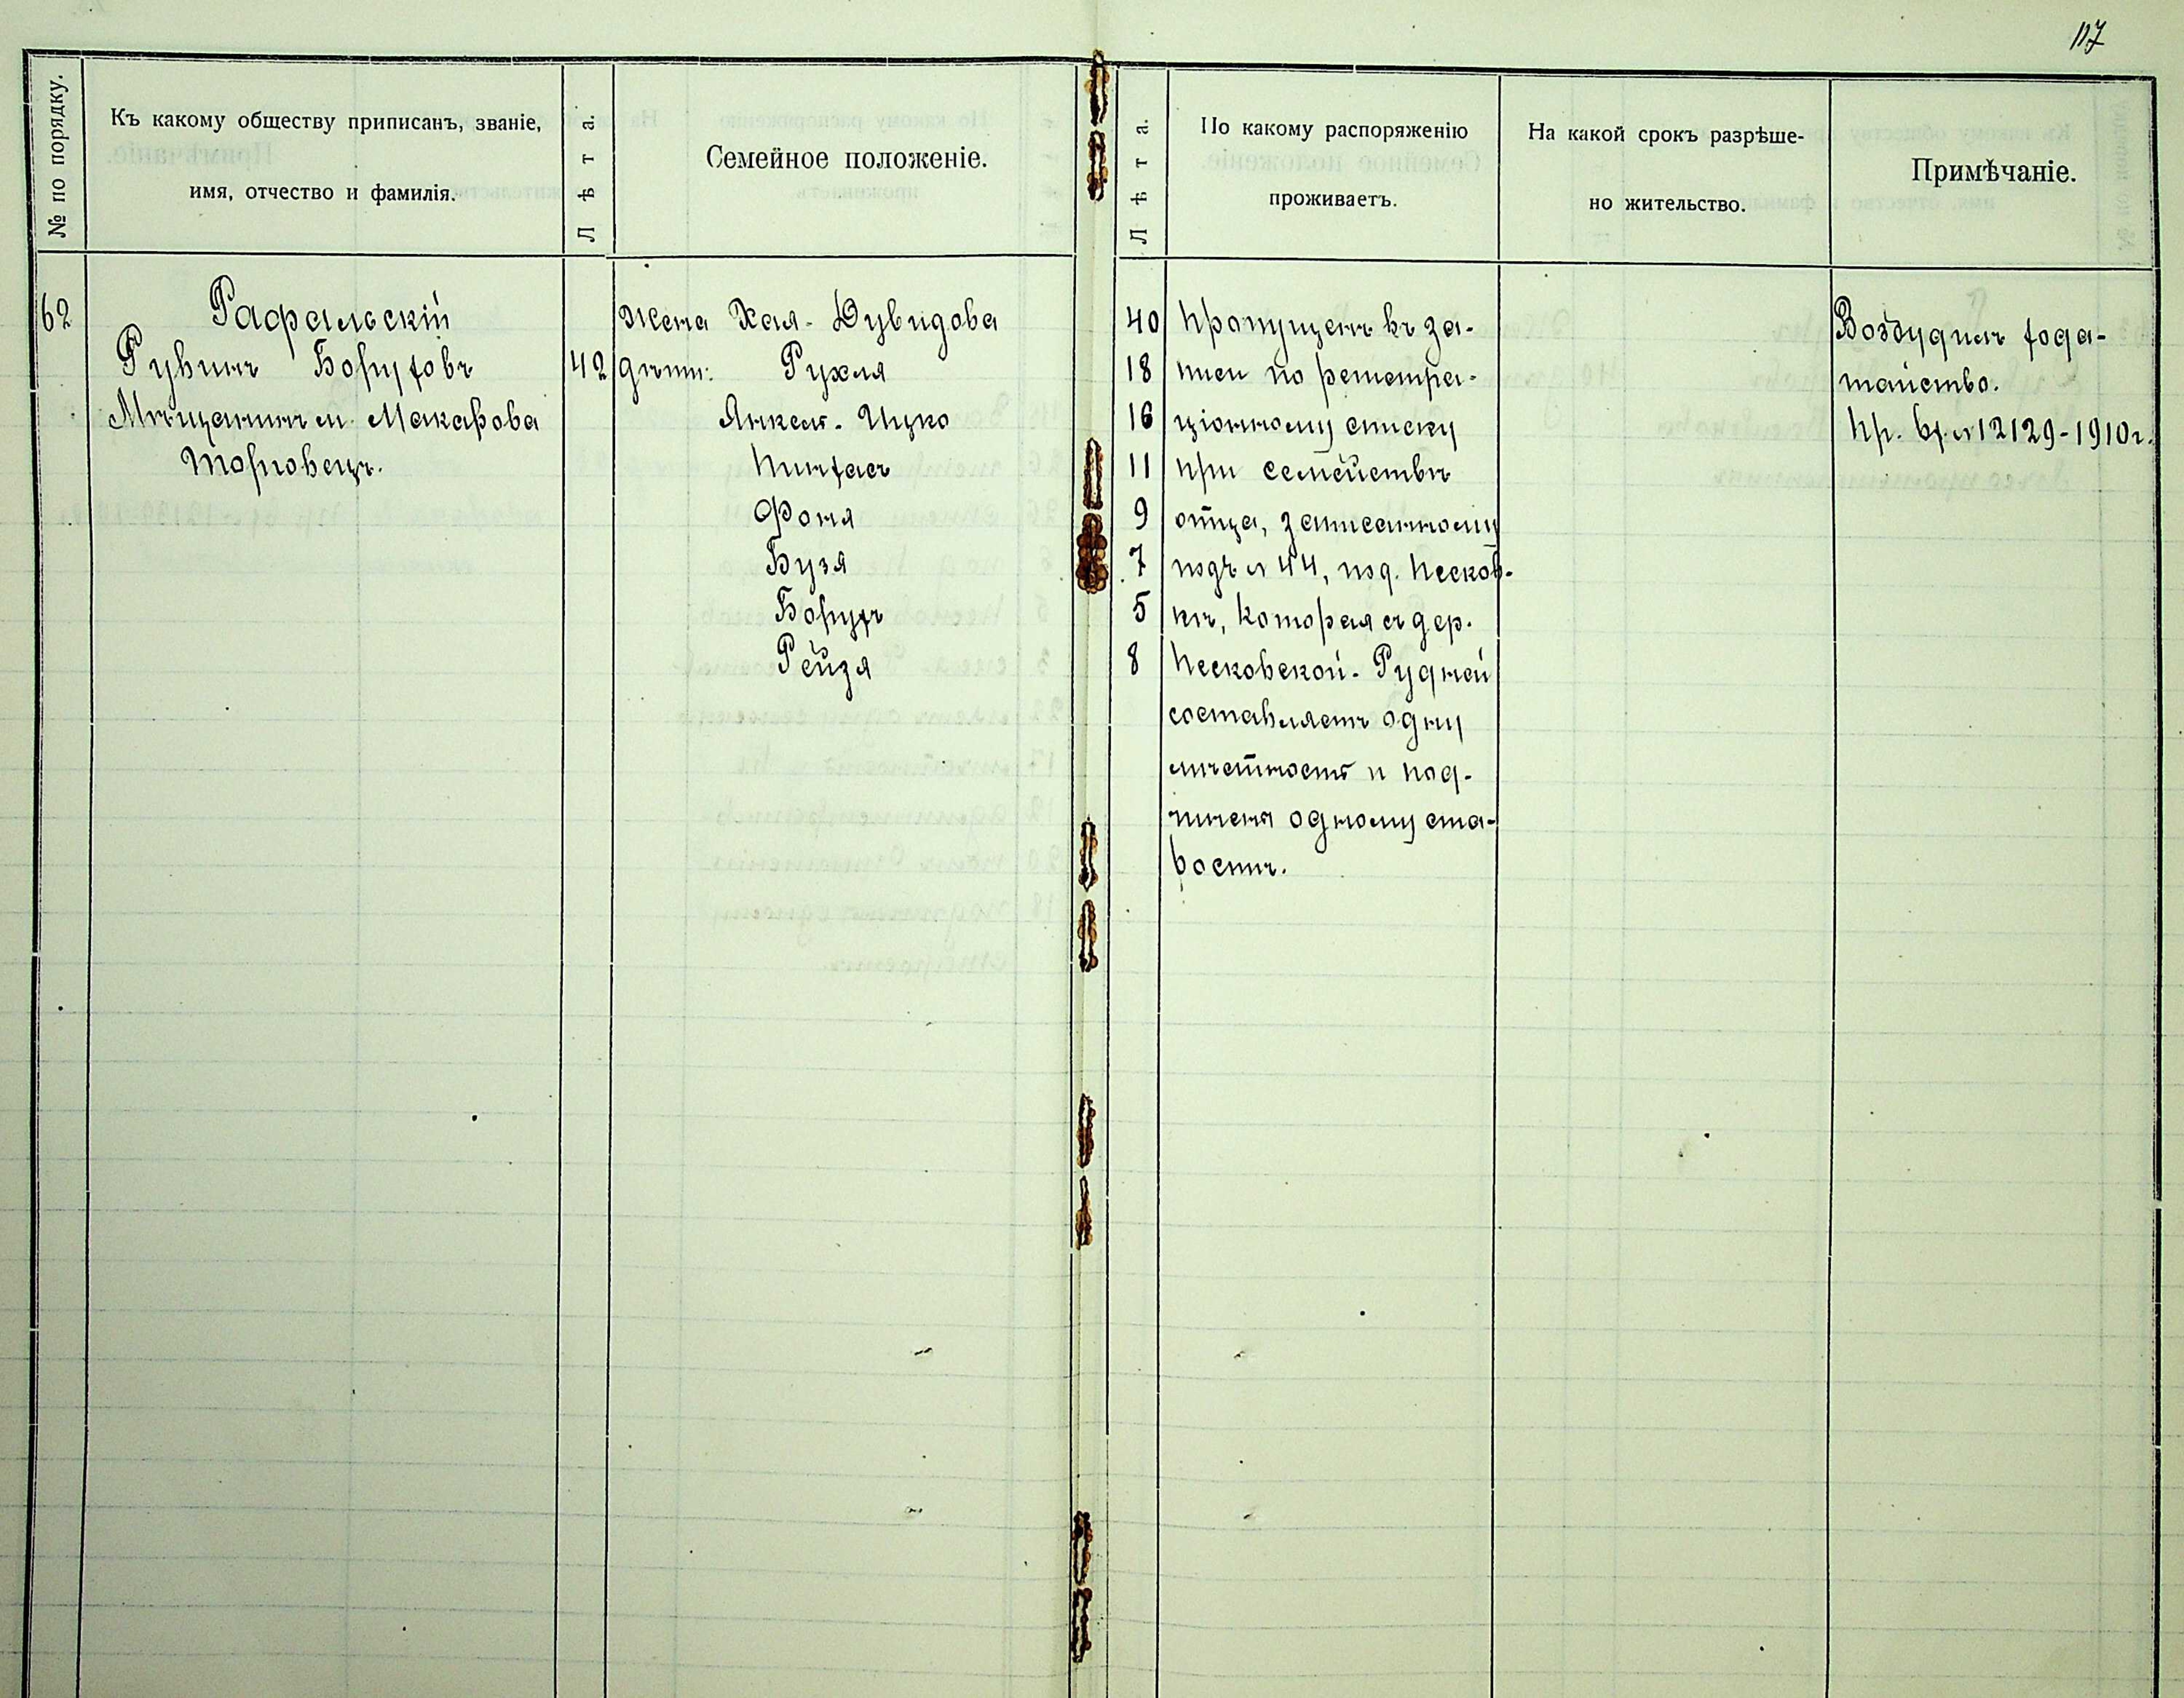 117
№ по порядку.
Къ какому обществу приписанъ, званіе,
имя, отчество и фамилія.
Лѣта.
Семейное положеніе.
Лѣта.
По какому распоряженію
проживаетъ.
На какой срокъ разрѣше-
но жительство.
Примѣчаніе.
62
Рафальскій
Рувинъ Боруховъ
Мѣщанинъ м. Макарова
торговецъ.
42
Жена Хая-Дувидова
дѣти: Рухля
Янкель-Ицко
Пинхасъ
Фоня
Бузя
Борухъ
Рейзя
40
18
16
11
9
7
5
8
Пропущенъ въ за-
писи по регистра-
ціонному списку
при семействѣ
отца, записанному
подъ № 44, под. Песков-
кѣ, которая съ дер.
Песковской-Рудней
составляетъ одну
мѣстность и под-
чинена одному ста-
ростѣ.
Возбудилъ хода-
тайство.
Пр. вх. № 12129-1910г.